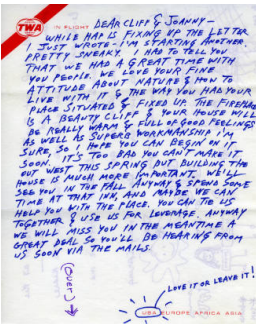 TWA
IN FLIGHT
DEAR CLIFF & JOANNY—
WHILE HAP IS FIXING UP THE LETTER
I JUST WROTE - I'M STARTING ANOTHER.
PRETTY SNEAKY. I HAD TO TELL YOU
THAT WE HAD A GREAT TIME WITH
YOU PEOPLE. WE LOVE YOUR FINE
ATTITUDE ABOUT NATURE & HOW TO
LIVE WITH IT & THE WAY YOU HAD YOUR
PLACE SITUATED & FIXED UP. THE FIREHALL
IS A BEAUTY CLIFF & YOUR HOUSE WILL
BE REALLY WARM & FULL OF GOOD FEELINGS
AS WELL AS SUPERB WORKMANSHIP I'M
SURE. SO I HOPE YOU CAN BEGIN ON IT
SOON. IT'S TOO BAD YOU CAN'T MAKE IT
OUT WEST THIS SPRING BUT BUILDING THE
HOUSE IS MUCH MORE IMPORTANT. WE'LL
SEE YOU IN THE FALL ANYWAY & SPEND SOME
TIME AT THAT INK, AND MAYBE WE CAN
HELP YOU WITH THE PLACE. YOU CAN TIE US
TOGETHER & USE US FOR LEVERAGE. ANYWAY
WE WILL MISS YOU IN THE MEANTIME A
GREAT DEAL SO YOU'LL BE HEARING FROM
US SOON VIA THE MAILS.
(OVER)
LOVE IT OR LEAVE IT!
USA EUROPE AFRICA ASIA